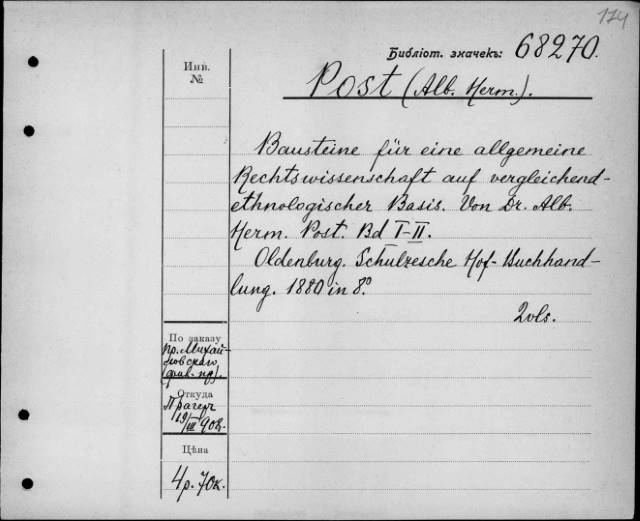 174
Библіот. значекъ: 68270.
Инв.
№
Post (Alb. Herm.).
Bausteine für eine allgemeine
Rechtswissenschaft auf vergleichend-
ethnologischer Basis. Von Dr. Alb.
Herm. Post. Bd I-II.
Oldenburg. Schulzesche Hof-Buchhand-
lung. 1880 in 8º.
2vols.
По заказу
пр. Михай-
ловскаго
Откуда
Прагеръ
19/III 902.
Цѣна
4р. 70к.